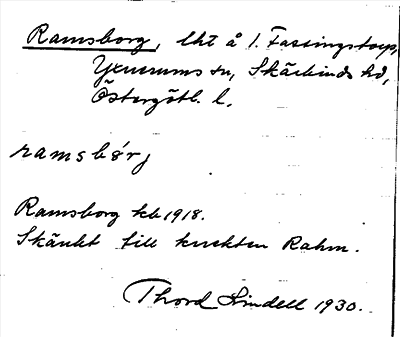 Ramsborg, lht å 1. Fassingstorp,
Yxnerums sn, Skärkinds hd,
Östergötl. l.
ramsbǿrj
Ramsborg kb 1918.
Skänkt till knekten Rahm.
Thord Lindell 1930.